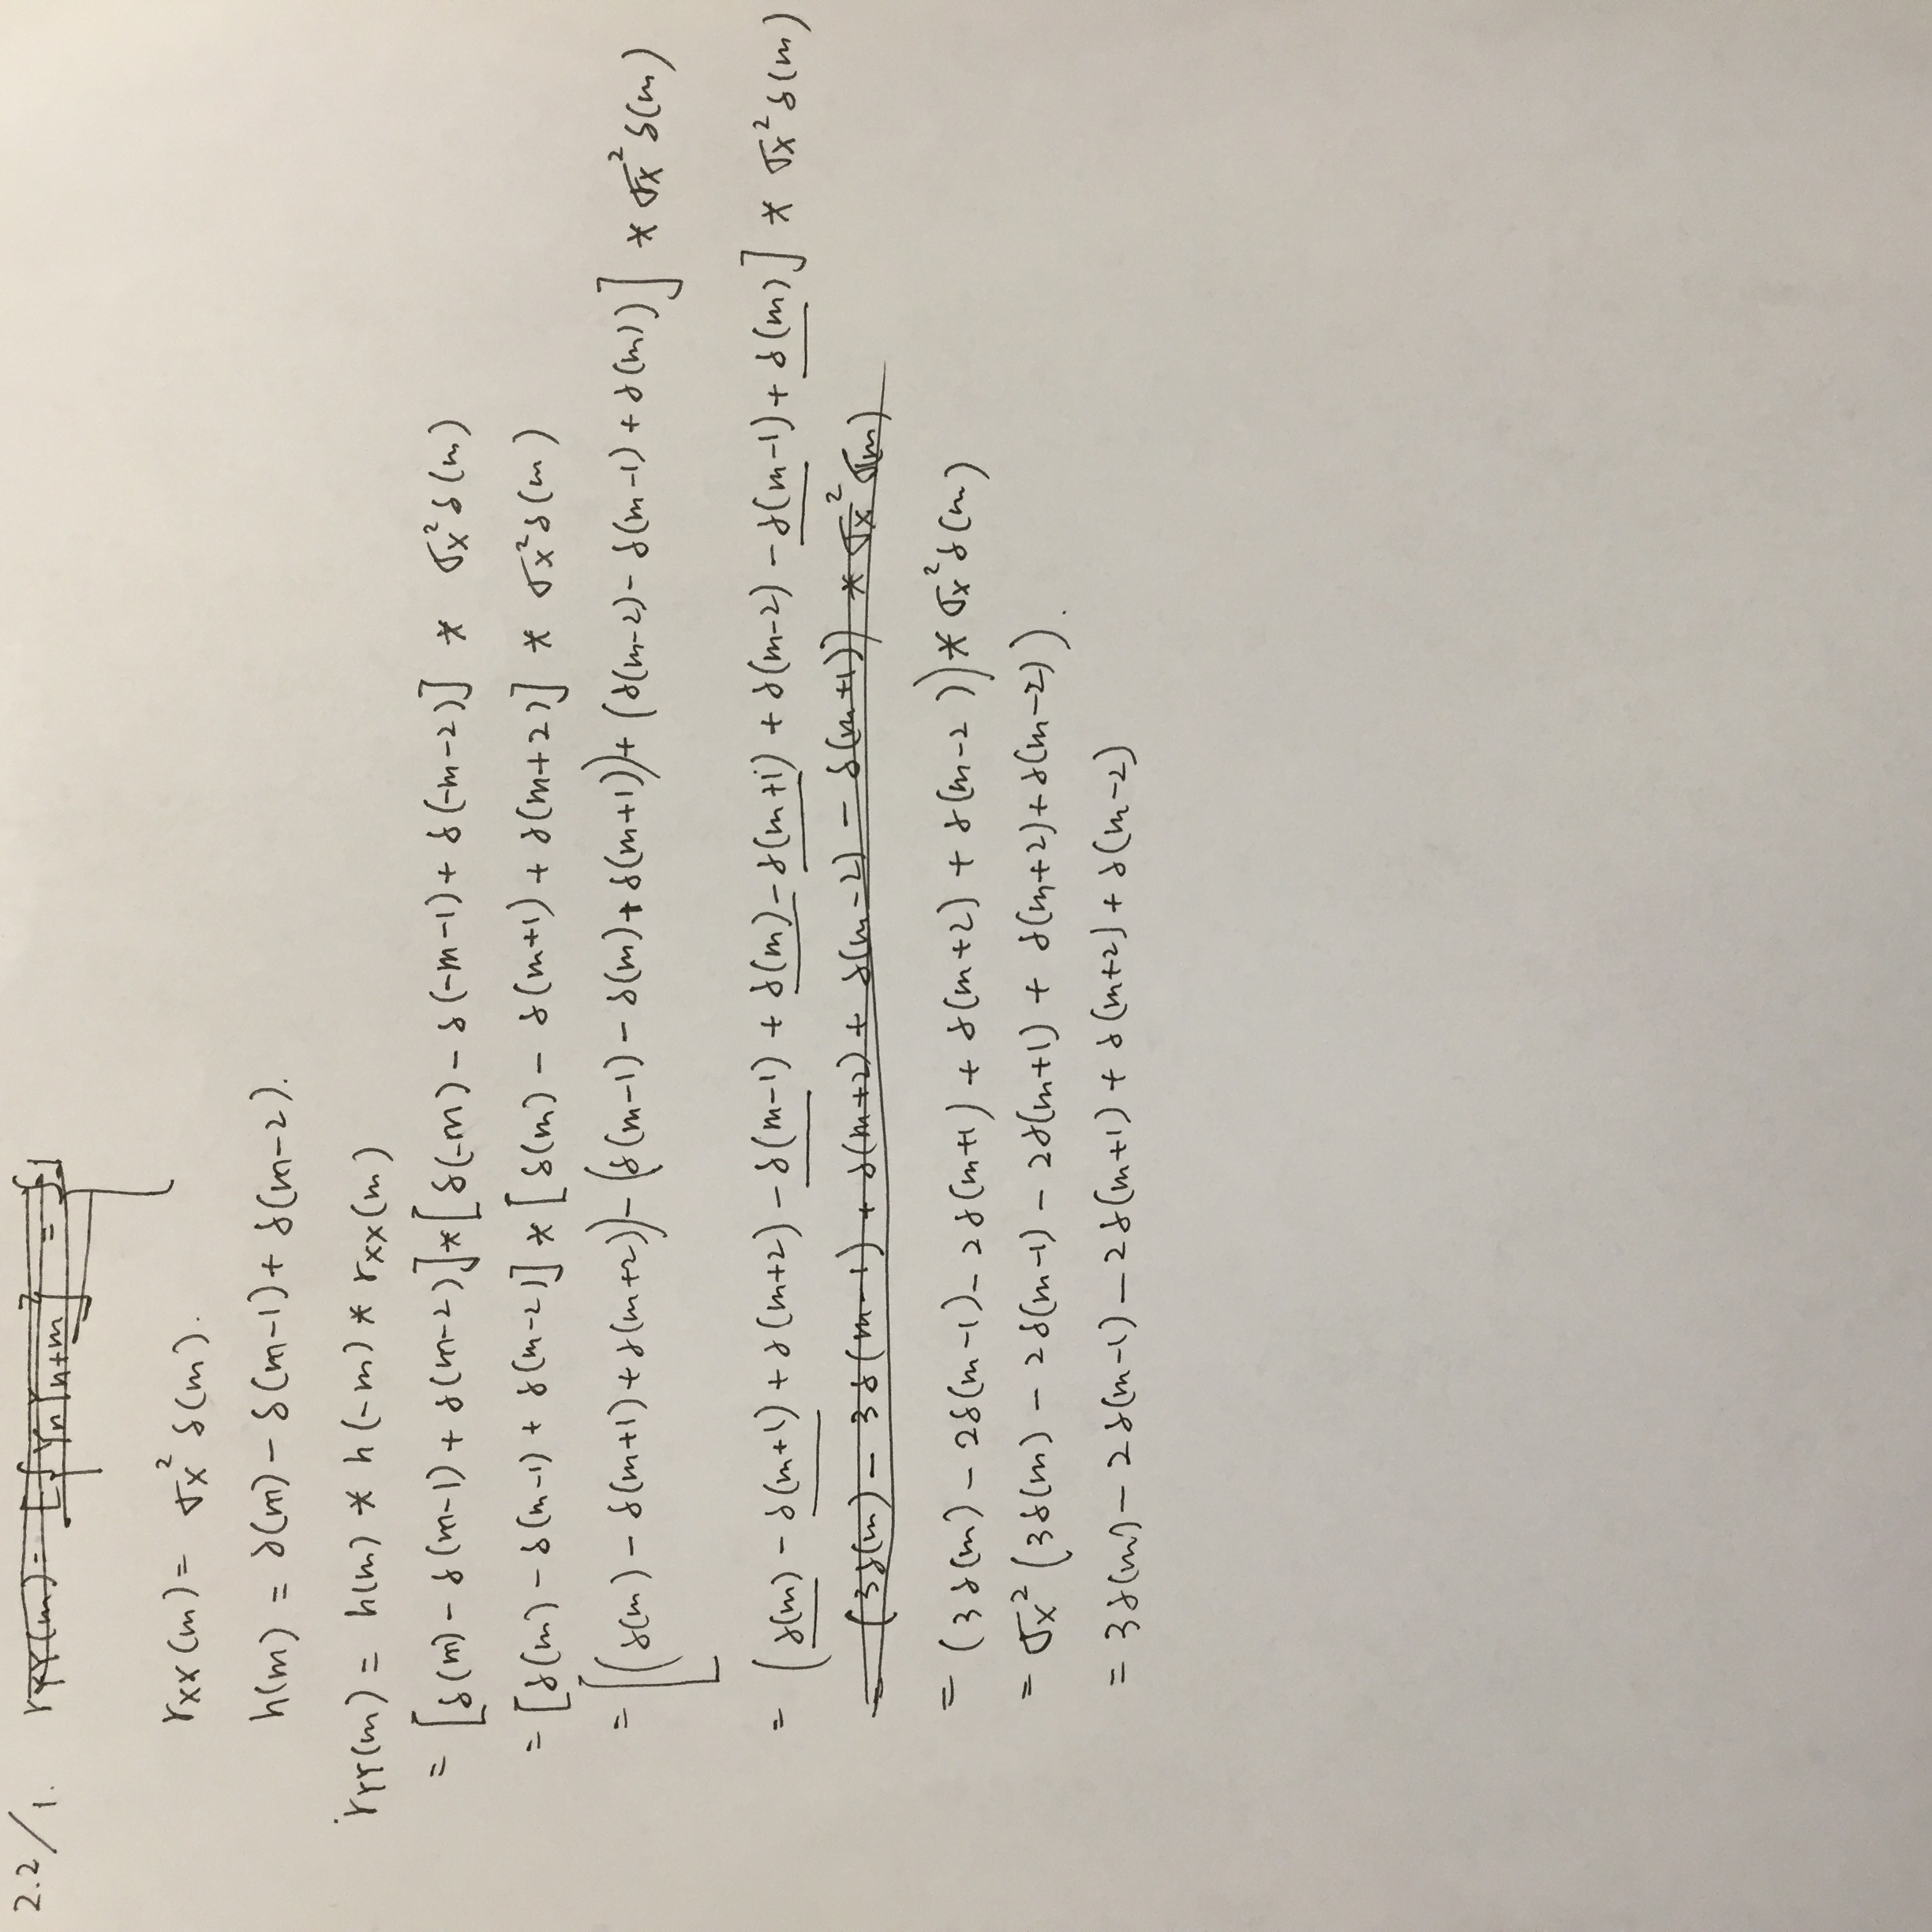 2.2/1. rYY(m) = E[Yn Yn+m] =
rXX(m) = σX² δ(m).
h(m) = δ(m) − δ(m−1) + δ(m−2).
rYY(m) = h(m) * h(−m) * rXX(m)
= [δ(m) − δ(m−1) + δ(m−2)] * [δ(−m) − δ(−m−1) + δ(−m−2)] * σX² δ(m)
= [δ(m) − δ(m−1) + δ(m−2)] * [δ(m) − δ(m+1) + δ(m+2)] * σX² δ(m)
= [(δ(m) − δ(m+1) + δ(m+2)) − (δ(m−1) − δ(m) + δ(m+1)) + (δ(m−2) − δ(m−1) + δ(m))] * σX² δ(m)
= (δ(m) − δ(m+1) + δ(m+2) − δ(m−1) + δ(m) − δ(m+1) + δ(m−2) − δ(m−1) + δ(m)] * σX² δ(m)
= (3δ(m) − 3δ(m−1) + δ(m+2) + δ(m−2) − δ(m+1)) * σX² σ(m)
= (3δ(m) − 2δ(m−1) − 2δ(m+1) + δ(m+2) + δ(m−2)) * σX² δ(m)
= σX² (3δ(m) − 2δ(m−1) − 2δ(m+1) + δ(m+2) + δ(m−2)).
= 3δ(m) − 2δ(m−1) − 2δ(m+1) + δ(m+2) + δ(m−2)